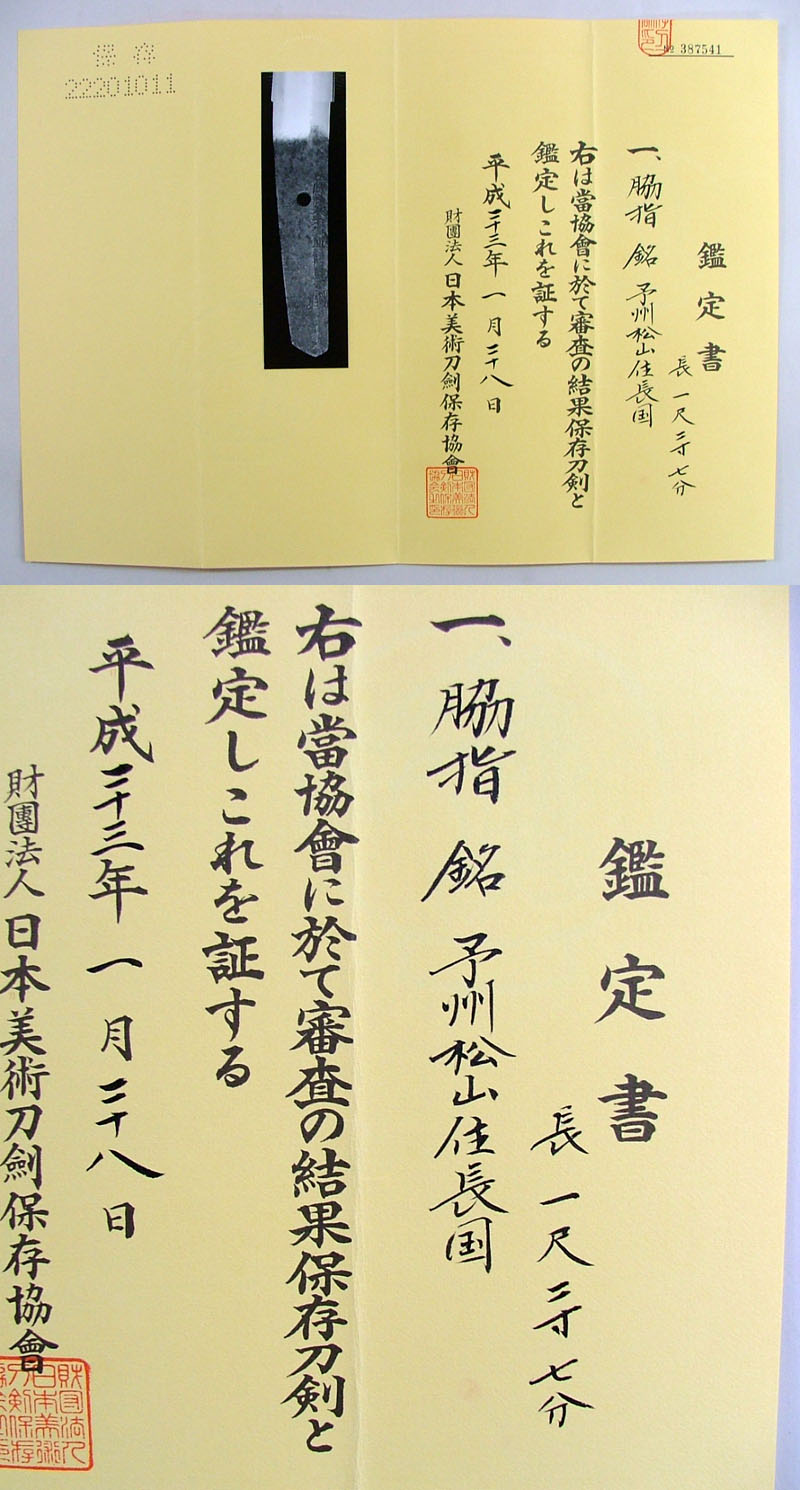 № 387541
鑑定書
長 一尺二寸七分
一、脇指 銘 予州松山住長国
右は當協會に於て審査の結果保存刀剣と
鑑定しこれを証する
平成二十三年 一月二十八日
財團法人 日本美術刀劍保存協會
保存
22201011
鑑定書
長 一尺二寸七分
一、脇指 銘 予州松山住長国
右は當協會に於て審査の結果保存刀剣と
鑑定しこれを証する
平成二十三年 一月二十八日
財團法人 日本美術刀劍保存協會